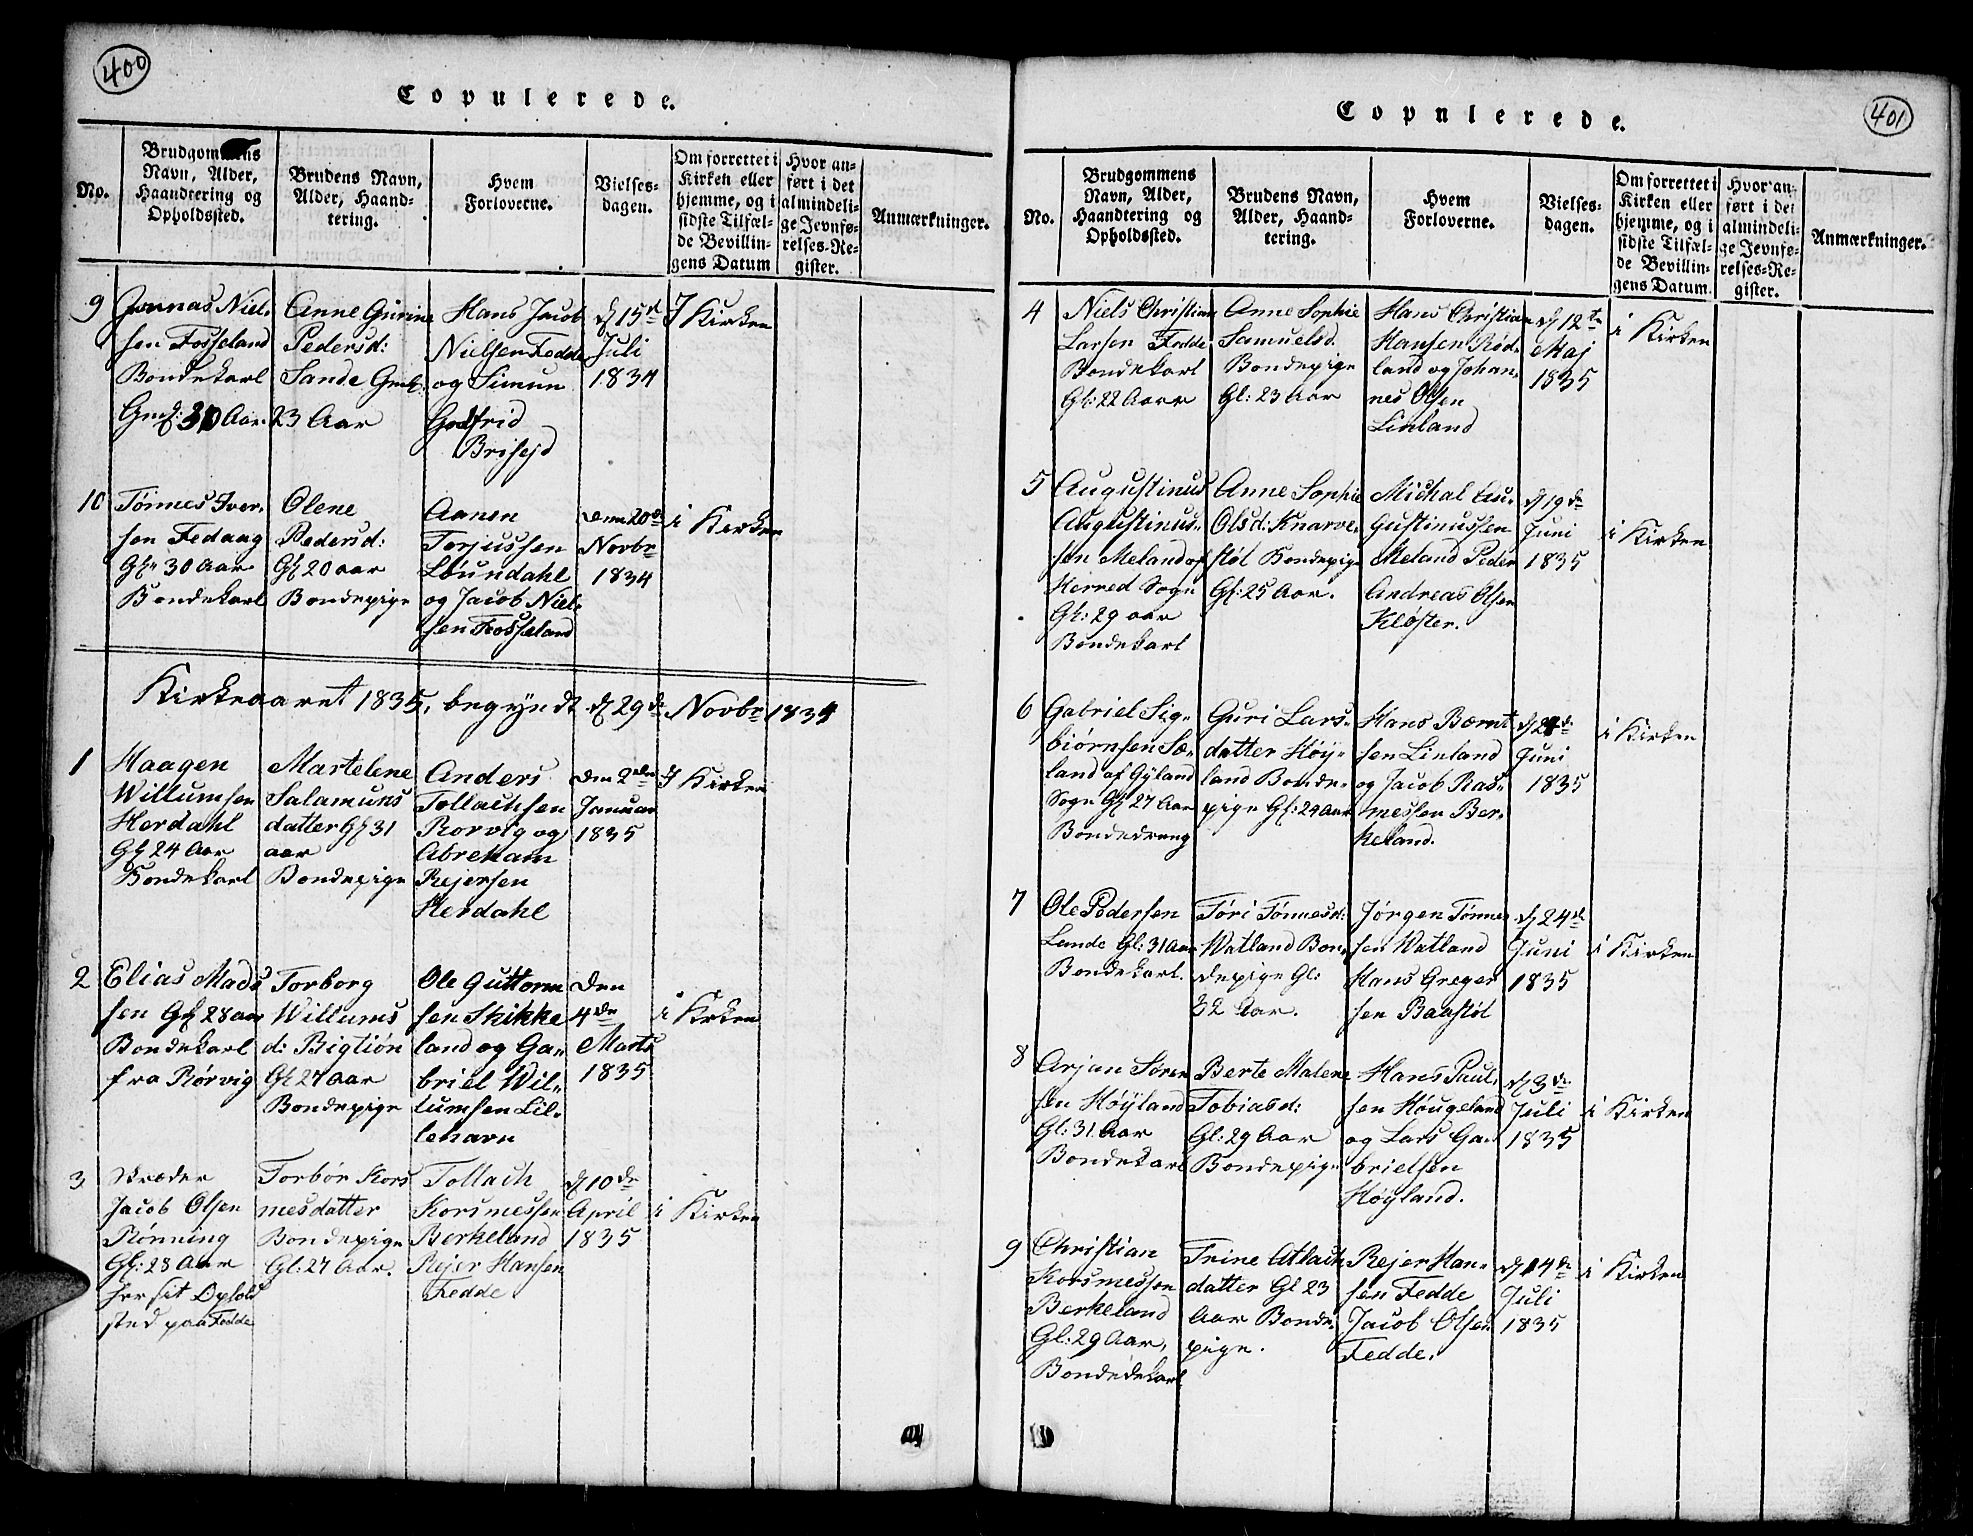 400
Copulerede.
No.
Brudgommens
Navn, Alder,
Haandtering og
Opholdssted.
Brudens Navn,
Alder, Haand-
tering.
Hvem
Forloverne.
Vielses-
dagen.
Om forrettet i
Kirken eller
hjemme, og i
sidste Tilfæl-
de Bevillin-
gens Datum
Hvor an-
ført i det
almindeli-
ge Jevnfø-
relses-Re-
gister.
Anmærkninger.
9
Jonnas Niel-
sen Fosseland
Bondekarl
Gml: 30 Aar
Anne Gurine
Pedersd:
Sande Gml:
23 Aar
Hans Jacob
Nielsen Fedde
og Simun
Godtfrid
Brisejd
d 15de
Juli
1834
I Kirken
10
Tönnes Iver-
sen Fedaag
Gl: 30 Aar
Bondekarl
Olene
Pedersd:
Gl 20 aar
Bondepige
Aanen
Torjussen
Loundahl
og Jacob Niel-
sen Fosseland
den 20de
Novbr
1834
i Kirken
Kirkeaaret 1835, begyndt d 29de Novbr 1834
1
Haagen
Willumsen
Herdahl
Gl 24 Aar
Bondekarl
Martelene
Salamuns
datter Gl 31
aar
Bondepige
Anders
Tollachsen
Rorvig og
Abreham
Rejersen
Herdahl
den 2den
Januar
1835
I Kirken
2
Elias Mads
sen Gl 28 aar
Bondekarl
fra Rörvig
Torborg
Willums
d: Bigtiön
Gl: 27 Aar
Bondepige
Ole Guttorm
sen Skikke
land og Ga-
briel Wil-
lumsen Lil-
lehavn
den
4de
Marts
1835
i Kirken
3
Skræder
Jacob Olsen
Rönning
Gl: 28 Aar
har sit Ophold
sted paa Fedde
Torbör Kors
mesdatter
Bondepige
Gl: 27 Aar.
Tollach
Korsmessen
Berkeland
Rejer Hansen
Fedde
d 10de
April
1835
i Kirken
401
Copulerede.
No.
Brudgommens
Navn, Alder,
Haandtering og
Opholdssted.
Brudens Navn,
Alder, Haand-
tering.
Hvem
Forloverne.
Vielses-
dagen.
Om forrettet i
Kirken eller
hjemme, og i
sidste Tilfæl-
de Bevillin-
gens Datum.
Hvor an-
ført i det
almindeli-
ge Jevnfø-
relses-Re-
gister.
Anmærkninger.
4
Niels Christian
Larsen Fedde
Bondekarl
Gl: 22 Aar
Anne Sophie
Samuelsd.
Bondepige
Gl: 23 Aar
Hans Christian
Hansen Röd-
land og Johan-
nes Olsen
Linland
d 12te
Maj
1835
i Kirken
5
Augustinus
Augustinus-
sen Meland af
Herred Sogn
Gl: 29 aar
Bondekarl
Anne Sophie
Olsd: Knarve-
stöl Bondepige
Gl: 25 Aar.
Michal Au-
gustinussen
Meland Peder
Andreas Olsen
Klöster.
d 19de
Juni
1835
i Kirken
6
Gabriel Sig-
biörnsen Sæ-
land af Gyland
Sogn Gl 27 Aar
Bondedreng
Guri Lars-
datter Höy-
land Bonde-
pige Gl: 24 Aar
Hans Bærnt
sen Linland
og Jacob Ras-
messen Ber-
keland.
Juni
1835
i Kirken
7
Ole Pedersen
Lande Gl: 31 Aar
Bondekarl.
Töri Tönnesd:
Watland Bon-
depige Gl:
32 Aar.
Jörgen Tönnes
sen Watland
Hans Greger
sen Baastöl
d 24de
Juni
1835
i Kirken
8
Arjan Sören
sen Höyland
Gl: 31 Aar
Bondekarl
Berte Malene
Tobiasd:
Gl: 29 Aar
Bondepige
Hans Paul-
sen Hougeland
og Lars Ga-
brielsen
Höyland.
d 3de
Juli
1835
i Kirken
9
Christian
Korsmessen
Berkeland
Gl: 29 Aar,
Bondedekarl
Trine Atlach
datter Gl 23
Aar Bonde-
pige.
Rejer Han-
sen Fedde
Jacob Olsen
Fedde.
d 14de
Juli
1835
i Kirken